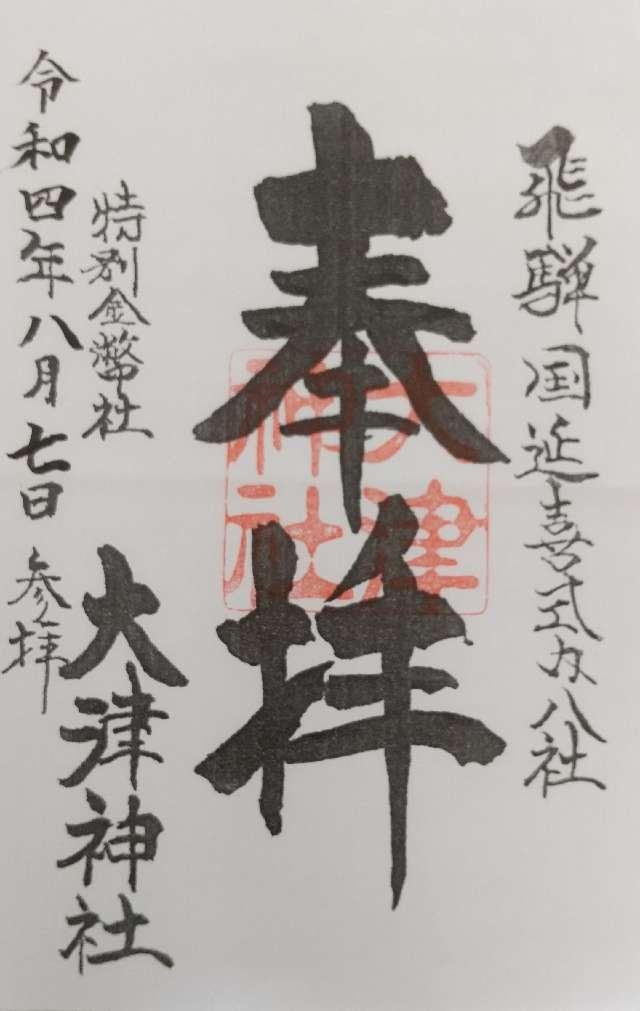 飛騨国延喜式内八社
奉拝
大津神社
特別金幣社
大津神社
令和四年八月七日 参拝